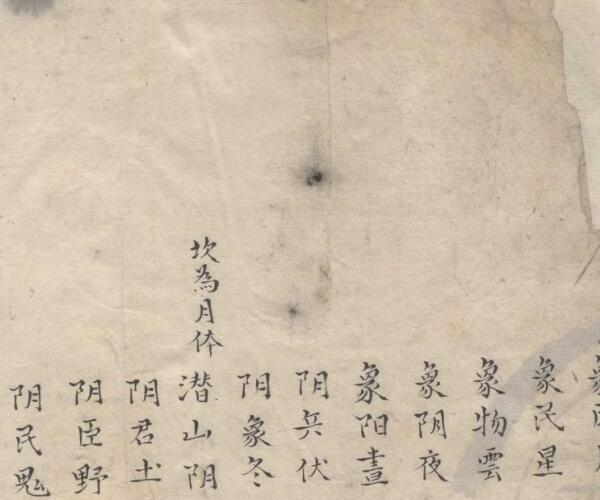 象民星
象物雲
象阴夜
象阳晝
阴兵伏
阴象冬
坎為月体
潜山阴
阴君土
阴臣野
阴民鬼